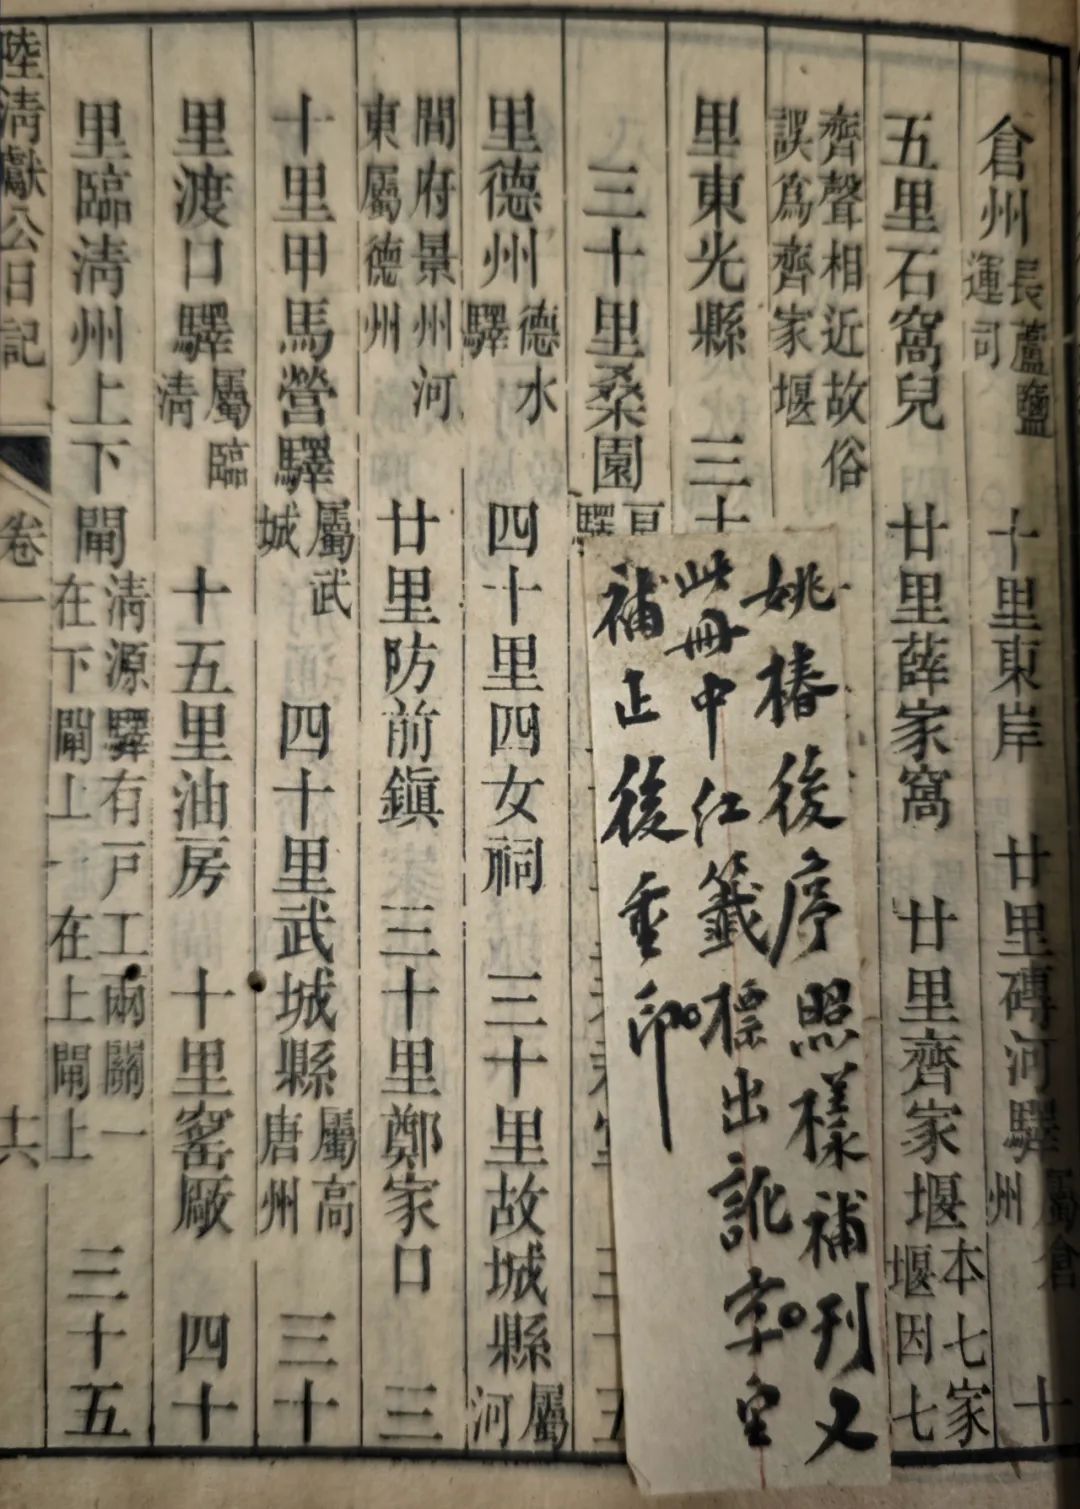 倉州長蘆鹽運司 十里東岸 廿里磚河驛屬倉州 十
五里石窩兒 廿里薛家窩 廿里齊家堰本七家堰因七
齊聲相近故俗誤爲齊家堰
里東光縣 三十
三十里桑園
里德州德水驛 四十里四女祠 三十里故城縣屬河
間府景州河東屬德州 廿里防前鎮 三十里鄭家口 三
十里甲馬營驛屬武城 四十里武城縣屬高唐州 三十
里渡口驛屬臨清 十五里油房 十里窰廠 四十
里臨清州上下閘清源驛有戶工兩關一在下閘上一在上閘上 三十五
陸清獻公日記 卷一 十六
姚椿後序照樣補刊又
此冊中紅籤標出訛字。宜
補正後重印。